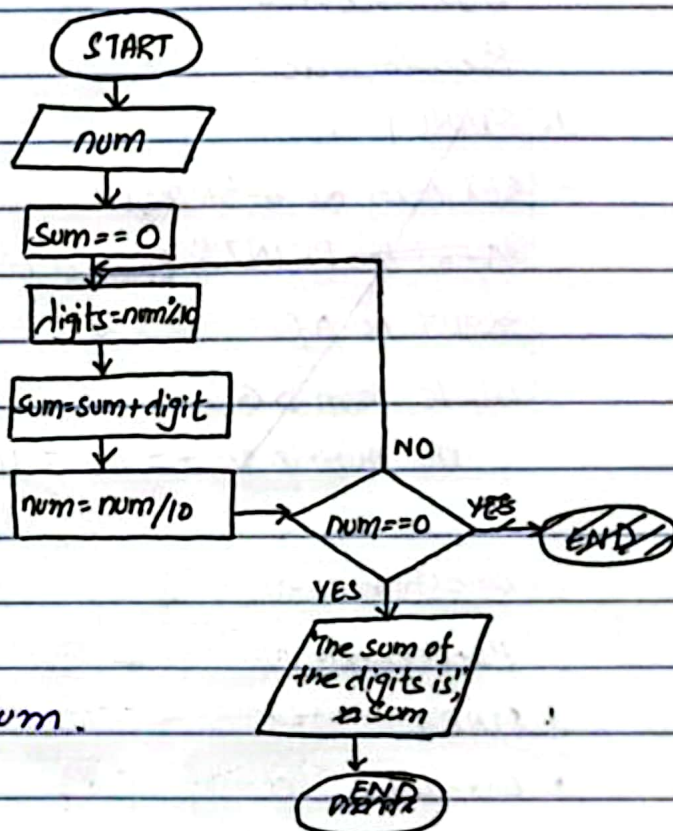 START
num
Sum == 0
digits=num%10
sum=sum+digit
num = num/10
NO
num==0
YES
END
YES
"The sum of
the digits is",
sum
um.
END